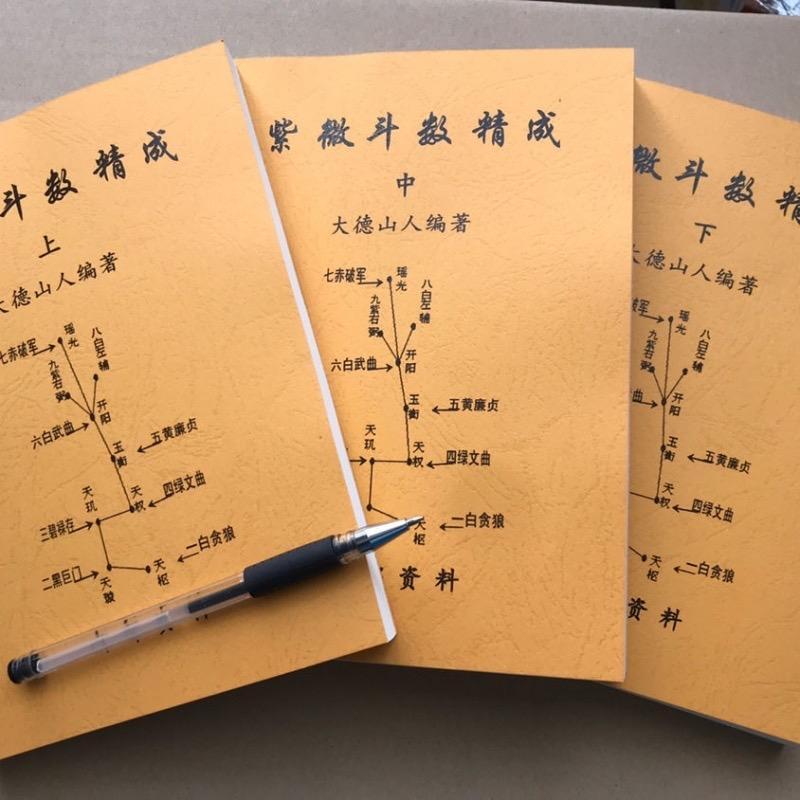 斗数精成
上
大德山人编著
七赤破军
瑶光
八白左辅
九紫右弼
开阳
六白武曲
玉衡
五黄廉贞
天玑
天权
四绿文曲
三碧禄存
一白贪狼
二黑巨门
天璇
天枢
紫微斗数精成
中
大德山人编著
七赤破军
瑶光
八白左辅
九紫右弼
开阳
六白武曲
玉衡
五黄廉贞
天玑
天权
四绿文曲
天枢
一白贪狼
资料
微斗数精
下
大德山人编著
瑶光
八白左辅
九紫右弼
开阳
曲
玉衡
五黄廉贞
天权
四绿文曲
天枢
一白贪狼
资料